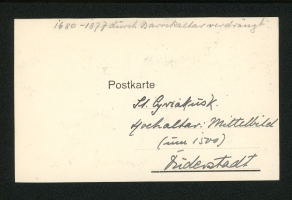 1680-1877 durch Barockaltar verdrängt.
Postkarte
St. Cyriakusk.
Hochaltar: Mittelbild
(um 1500)
Duderstadt